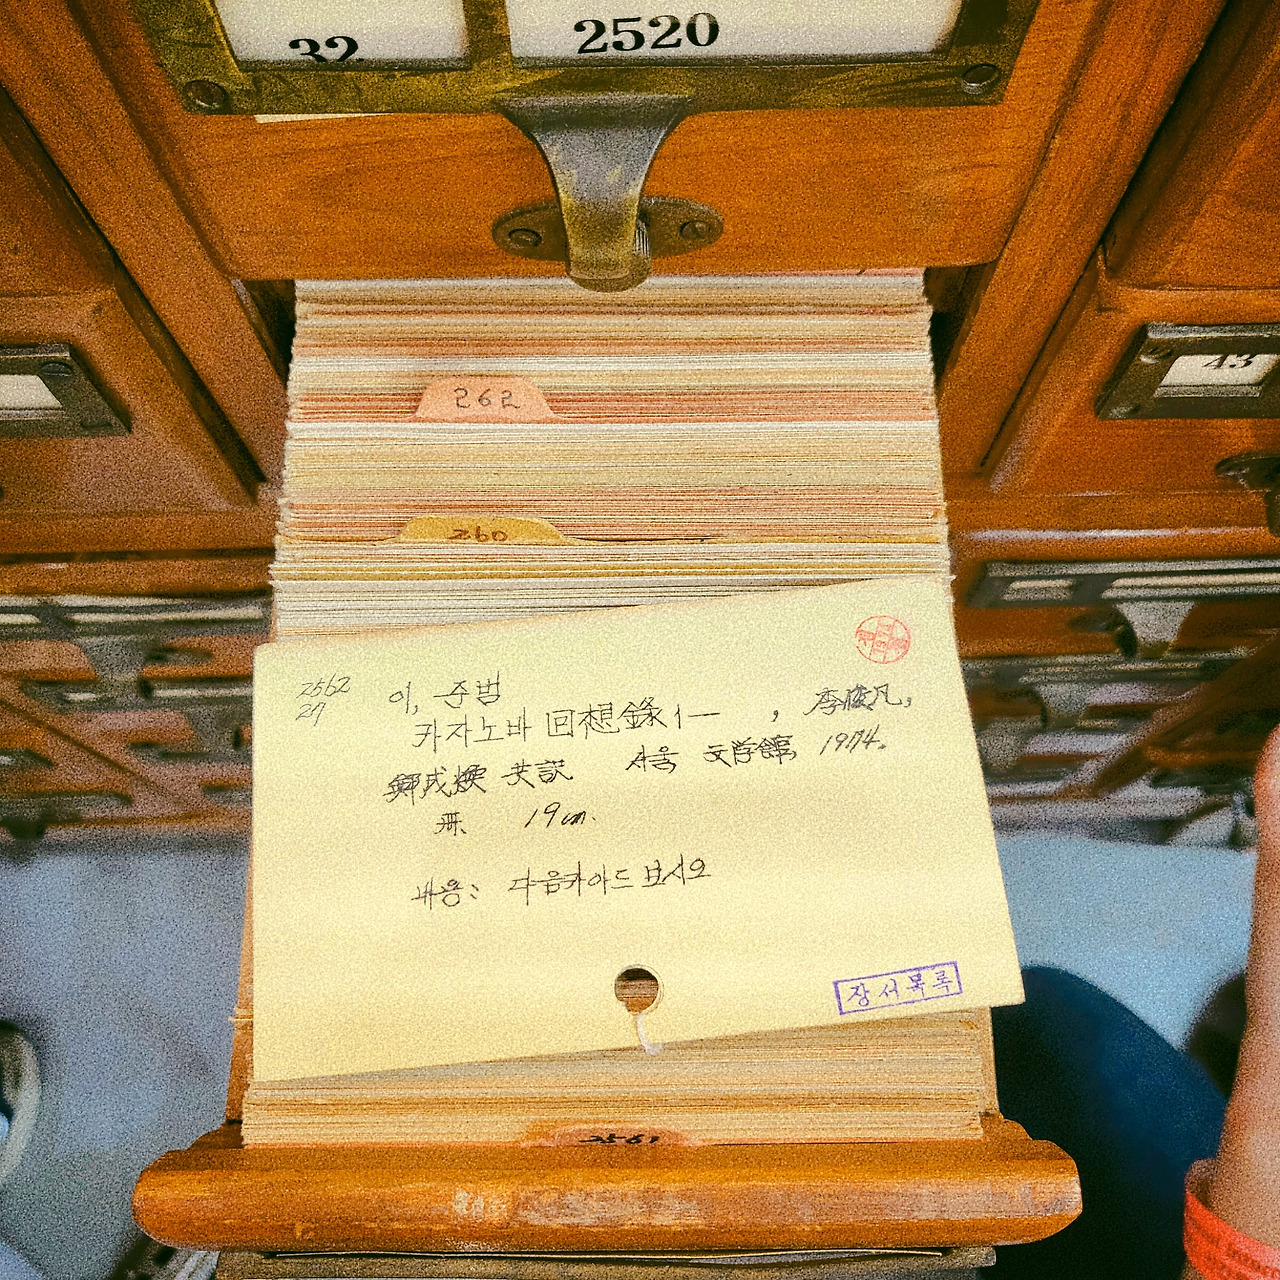 32
2520
43
262
260
2562
27
이, 주범
카자노바 回想錄 1— , 李俊凡,
鄭成煥 共訳 서울 文学館 1974.
冊. 19cm.
내용: 다음카아드 보시오
장서목록
2561